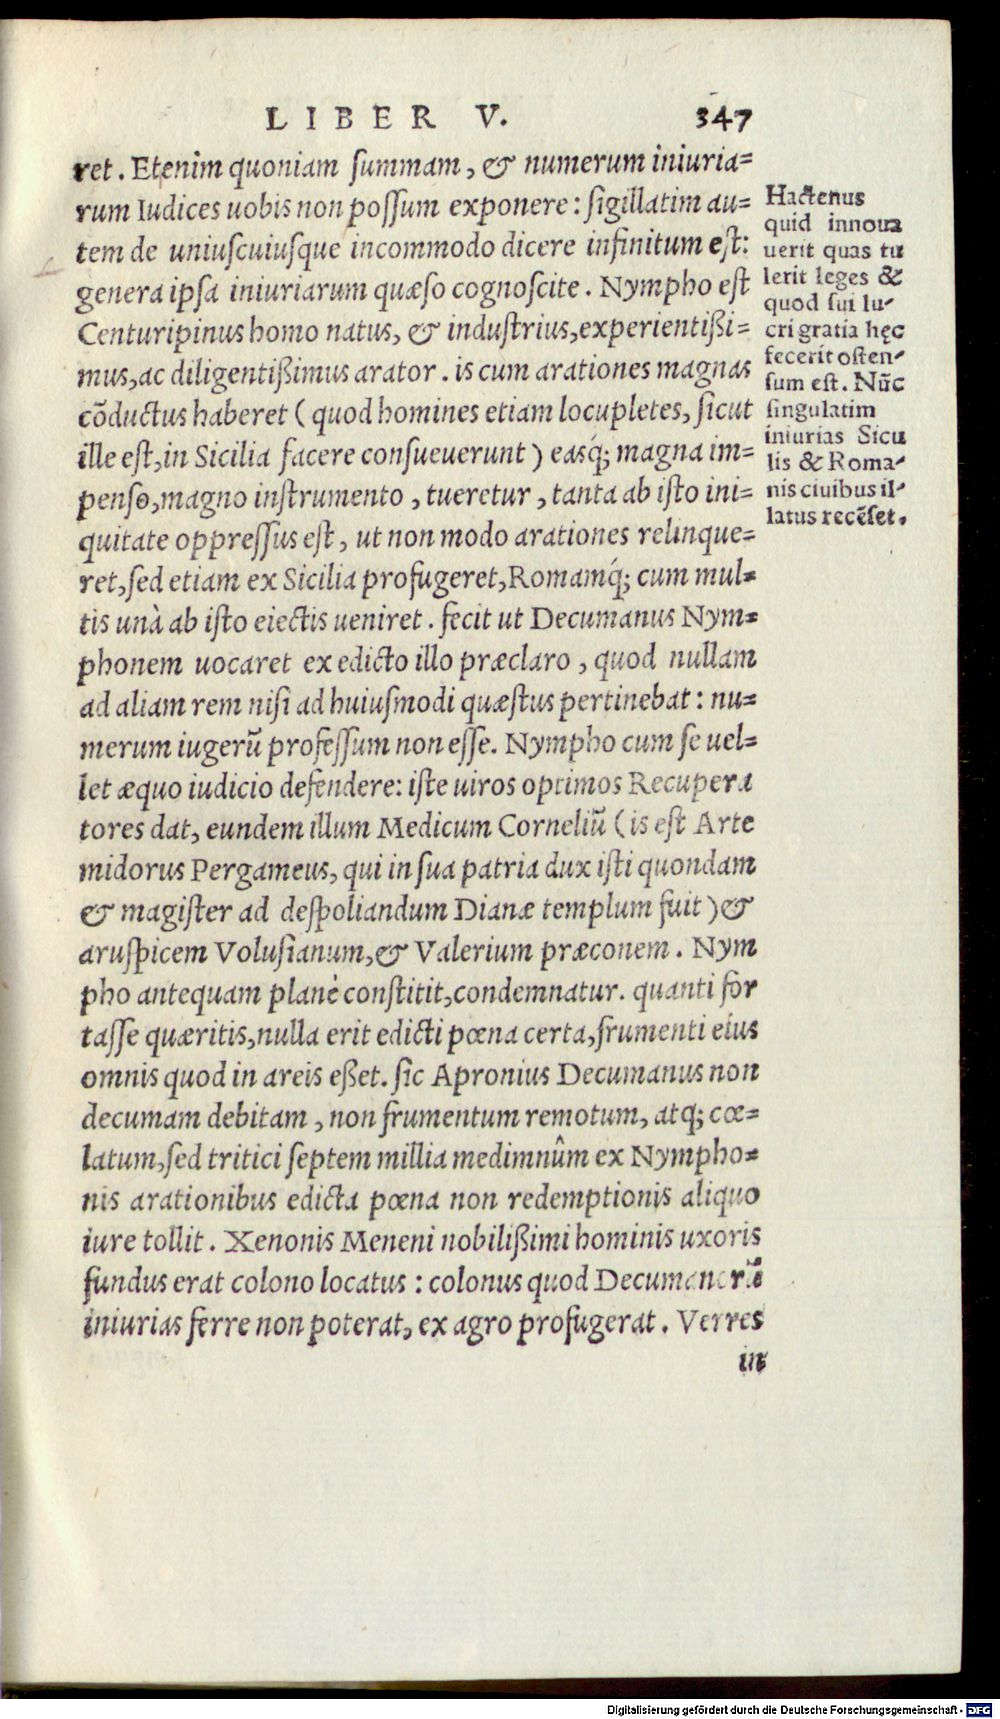 LIBER V. 347
ret. Etenim quoniam summam, & numerum iniuria=
rum Iudices uobis non possum exponere: sigillatim au=
tem de uniuscuiusque incommodo dicere infinitum est:
genera ipsa iniuriarum quæso cognoscite. Nympho est
Centuripinus homo natus, & industrius, experientißi=
mus, ac diligentißimus arator. is cum arationes magnas
cõductus haberet (quod homines etiam locupletes, sicut
ille est, in Sicilia facere consueuerunt) easq́; magna im=
penso, magno instrumento, tueretur, tanta ab isto ini=
quitate oppressus est, ut non modo arationes relinque=
ret, sed etiam ex Sicilia profugeret, Romamq́; cum mul=
tis unà ab isto eiectis ueniret. fecit ut Decumanus Nym=
phonem uocaret ex edicto illo præclaro, quod nullam
ad aliam rem nisi ad huiusmodi quæstus pertinebat: nu=
merum iugerũ professum non esse. Nympho cum se uel=
let æquo iudicio defendere: iste uiros optimos Recupera
tores dat, eundem illum Medicum Corneliũ (is est Arte
midorus Pergameus, qui in sua patria dux isti quondam
& magister ad despoliandum Dianæ templum fuit) &
aruspicem Volusianum, & Valerium præconem. Nym
pho antequam planè constitit, condemnatur. quanti for
tasse quæritis, nulla erit edicti pœna certa, frumenti eius
omnis quod in areis eßet. sic Apronius Decumanus non
decumam debitam, non frumentum remotum, atq; cœ=
latum, sed tritici septem millia medimnûm ex Nympho=
nis arationibus edicta pœna non redemptionis aliquo
iure tollit. Xenonis Meneni nobilißimi hominis uxoris
fundus erat colono locatus: colonus quod Decumanorũ
iniurias ferre non poterat, ex agro profugerat. Verres
in
Hactenus
quid innoua
uerit quas tu
lerit leges &
quod sui lu-
cri gratia hęc
fecerit osten-
sum est. Nũc
singulatim
iniurias Sicu
lis & Roma-
nis ciuibus il-
latus recẽset.
Digitalisierung gefördert durch die Deutsche Forschungsgemeinschaft - DFG